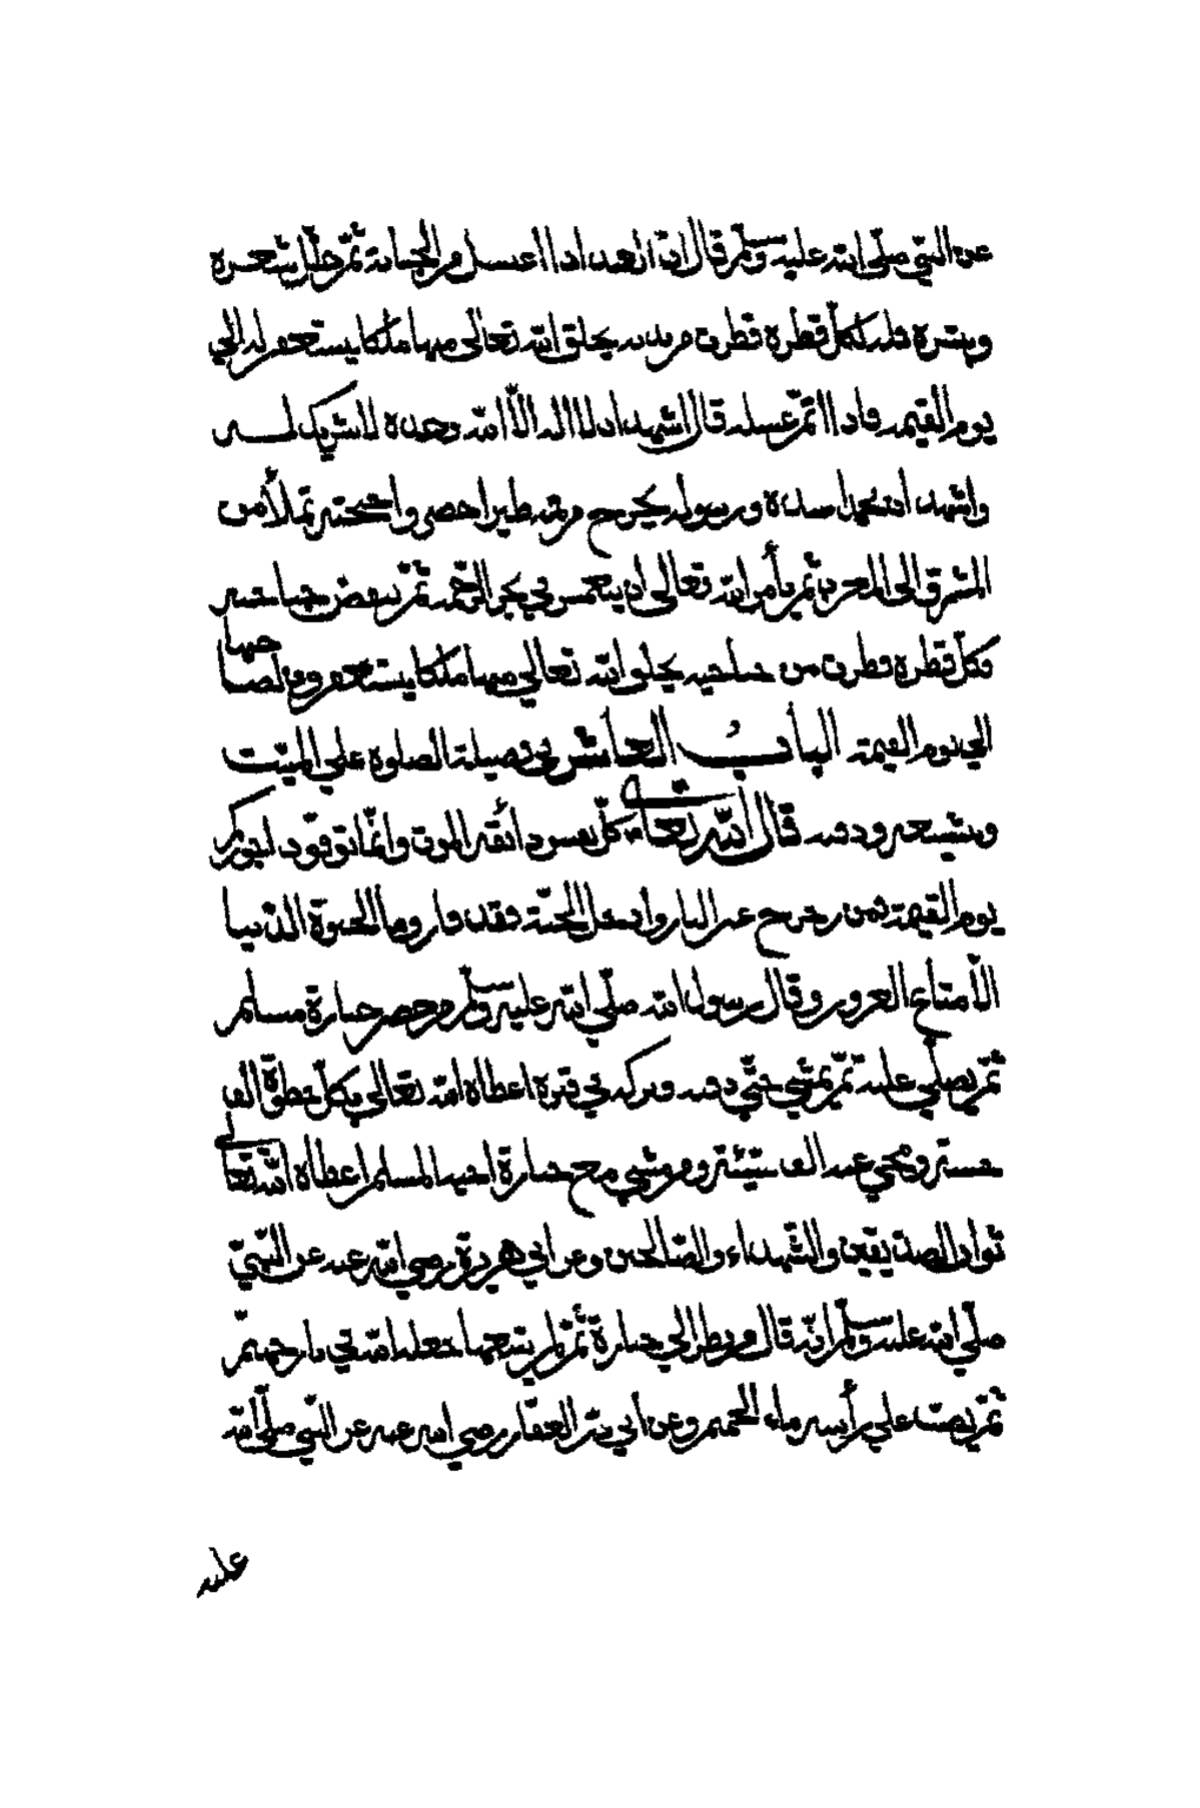 عن النبي صلى الله عليه وسلم قال ان العبد اذا اغتسل من الجنابة ثم خلل شعره
وبشره فلكل قطرة قطرت من بدنه يخلق الله تعالى منها ملكا يستغفر له الي
يوم القيمة فاذا اتم غسله قال اشهد ان لا اله الا الله وحده لا شريك له
واشهد ان محمدا عبده ورسوله يخرج من فمه طير اخضر واجنحته تملأ من
المشرق الى المغرب ثم يأمر الله تعالى ان ينغمس في بحر الرحمة ثم ينفض جناحيه
فكل قطرة قطرت من جناحيه يخلق الله تعالي منها ملكا يستغفر لصاحبها
الي يوم القيمة الباب العاشر في فضيلة الصلوة علي الميت
وتشييعه ودفنه قال الله تعالى كل نفس ذائقة الموت وانما توفون اجوركم
يوم القيمة فمن زحزح عن النار وادخل الجنة فقد فاز وما الحيوة الدنيا
الا متاع الغرور وقال رسول الله صلي الله عليه وسلم من حضر جنازة مسلم
ثم يصلي عليه ثم يمشي حتي دفنه وتركه في قبره اعطاه الله تعالي بكل خطوة الف
حسنة ومحي عنه الف سيئة ومن مشي مع جنازة اخيه المسلم اعطاه الله تعالى
ثواب الصديقين والشهداء والصالحين وعن ابي هريرة رضي الله عنه عن النبي
صلي الله عليه وسلم انه قال من نظر الي جنازة ثم لم يتبعها جعله الله في نار جهنم
ثم يصب علي رأسه ماء الحميم وعن أبي ذر الغفار رضي الله عنه عن النبي صلي الله
عليه